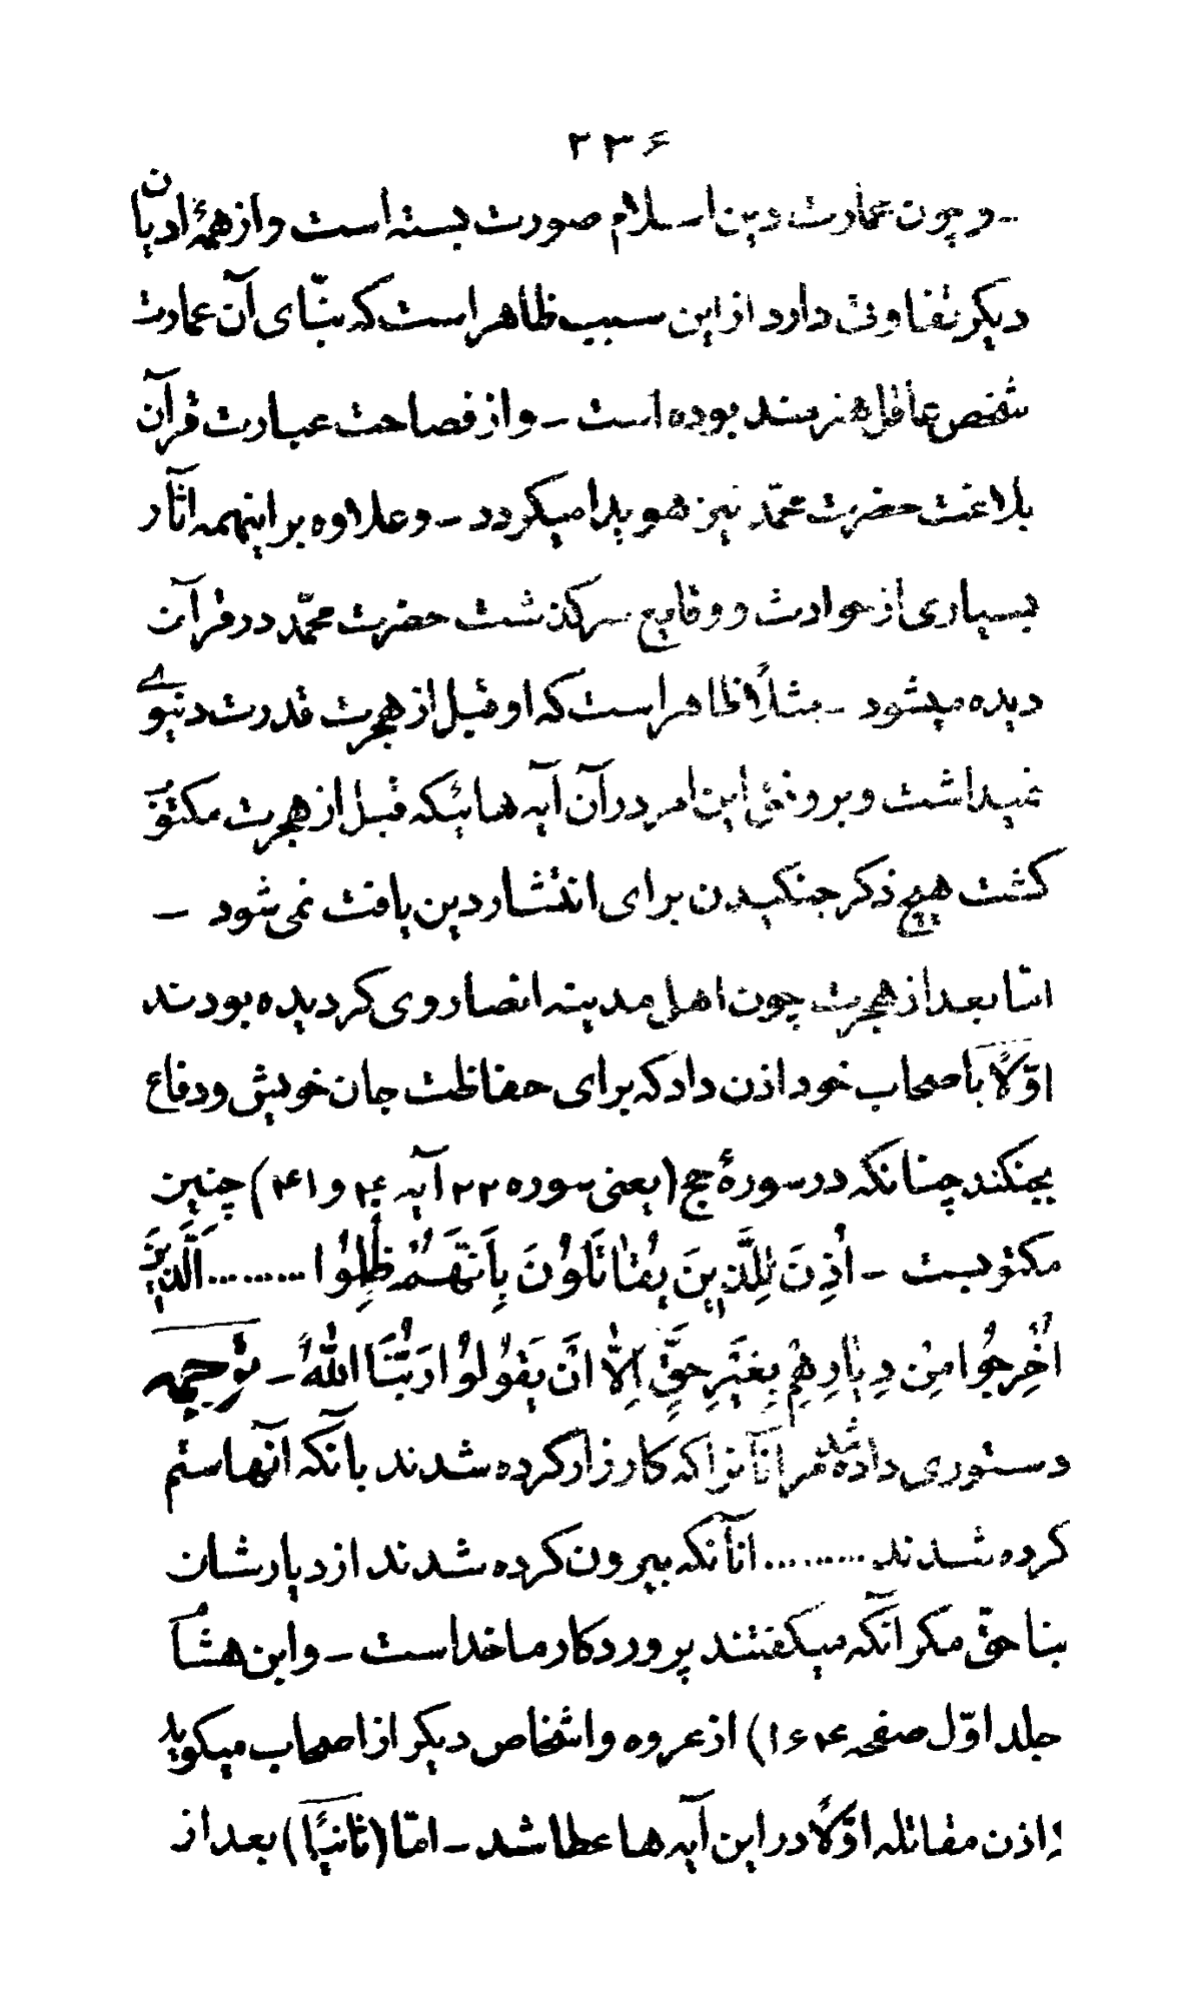 ۲۳۶
ـ و چون عمارت دین اسلام صورت بسته است و از همهٔ ادیان
دیکر تفاوتی دارد از این سبب ظاهر است که بنّای آن عمارت
شخص عاقل هنرمند بوده است ـ و از فصاحت عبارت قرآن
بلاغت حضرت محمّد نیز هویدا میکردد ـ و علاوه بر اینهمه آثار
بسیاری از حوادث و وقایع سرکذشت حضرت محمّد در قرآن
دیده میشود ـ مثلاً ظاهر است که او قبل از هجرت قدرت دنیوی
نمیداشت و بر وفق این امر در آن آیه هائیکه قبل از هجرت مکتوب
کشت هیچ ذکر جنکیدن برای انتشار دین یافت نمی شود ـ
امّا بعد از هجرت چون اهل مدینه انصار وی کردیده بودند
اوّلاً باصحاب خود اذن داد که برای حفاظت جان خویش و دفاع
بجنکند چنانکه در سورهٔ حج (یعنی سوره ۲۲ آیه ۴۰ و ۴۱) چنین
مکتوبست ـ اُذِنَ لِلَّذِینَ یُقٰاتَلُونَ بِاَنَّهُمْ ظُلِمُوا ......... اَلَّذِینَ
اُخْرِجُوا مِنْ دِیٰارِهِمْ بِغَیْرِ حَقٍّ اِلّٰا اَنْ یَقُولُوا رَبُّنَا اللّٰهُ ـ ترجمه
دستوری داده شد مر آنانرا که کارزار کرده شدند بآنکه آنها ستم
کرده شدند ......... آنانکه بیرون کرده شدند از دیارشان
بناحق مکر آنکه میکفتند پروردکار ما خداست ـ و ابن هشام
جلد اوّل صفحه ۱۶۴) از عروه و اشخاص دیکر از اصحاب میکوید
اذن مقاتله اوّلاً در این آیه ها عطا شد ـ امّا (ثانیاً) بعد از